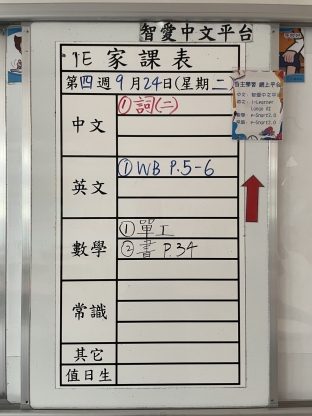 智愛中文平台
1E 家課表
第四週9月24日(星期二)
中文
①詞(二)
英文
①WB P.5-6
數學
①單工
②書 P.34
常識
其它
值日生
自主學習 網上平台
中文: 智愛中文平台
英文: i-Learner